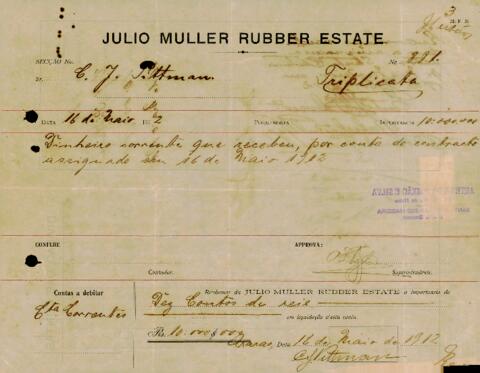 3
M. F. N.
JULIO MULLER RUBBER ESTATE
SECÇÃO No. No 221.
Sr. C. J. Pittman. Triplicata
DATA 16 de Maio 2 IMPORTANCIA 10.000.000
Dinheiro corrente que recebeu, por conta do contracto
assignado em 16 de Maio 1912
CONFERE APPROVA:
Contador. Superintendente.
Contas a debitar Recebemos da JULIO MULLER RUBBER ESTATE a importancia de
Cta Correntes Dez Contos de reis
em liquidação d'esta conta.
Rs. 10.000$000
16 de Maio de 1912
C J Pittman